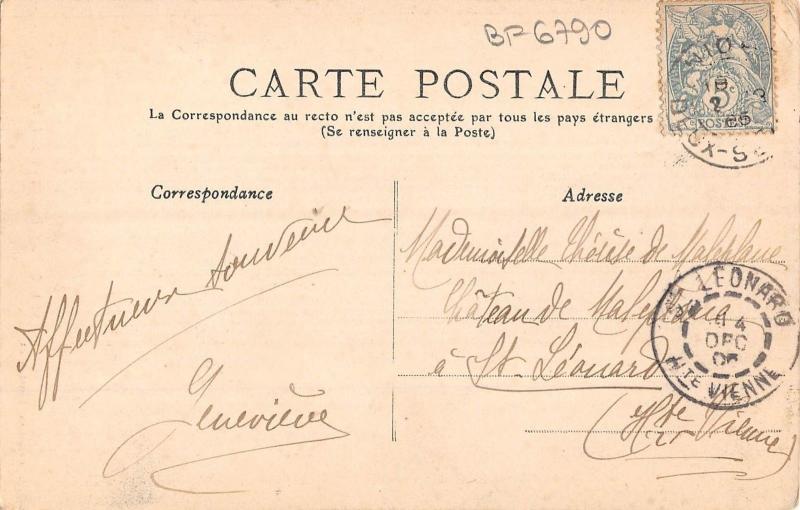 BF6790
CARTE POSTALE
La Correspondance au recto n'est pas acceptée par tous les pays étrangers
(Se renseigner à la Poste)
Correspondance
Affectueux souvenir
Geneviève
Adresse
Mademoiselle Thérèse de
Château de
à St. Léonard
(Hte Vienne)
5c
POSTES
LEONARD
DEC
HTE VIENNE